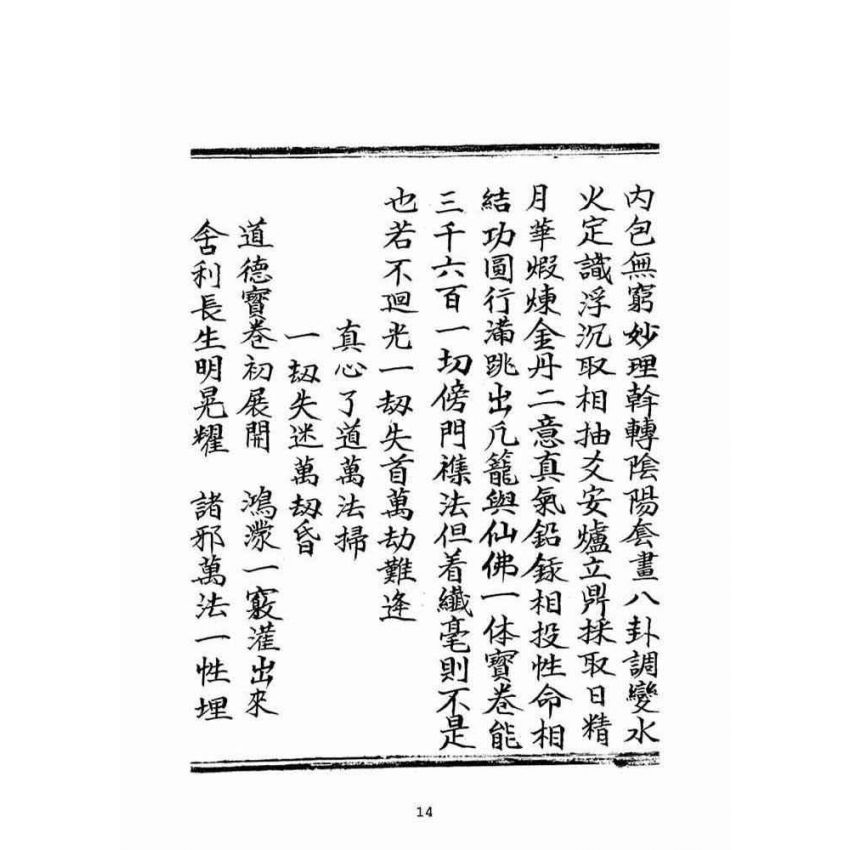 內包無窮妙理斡轉陰陽套畫八卦調變水
火定識浮沉取相抽爻安爐立鼎採取日精
月華煆煉金丹二意真氣鉛銾相投性命相
結功圓行滿跳出凡籠與仙佛一体寶卷能
三千六百一切傍門襍法但着纖毫則不是
也若不迴光一刼失首萬劫難逢
真心了道萬法掃
一刼失迷萬刼昏
道德寳卷初展開　鴻濛一竅灌出來
舍利長生明晃耀　諸邪萬法一性埋
14